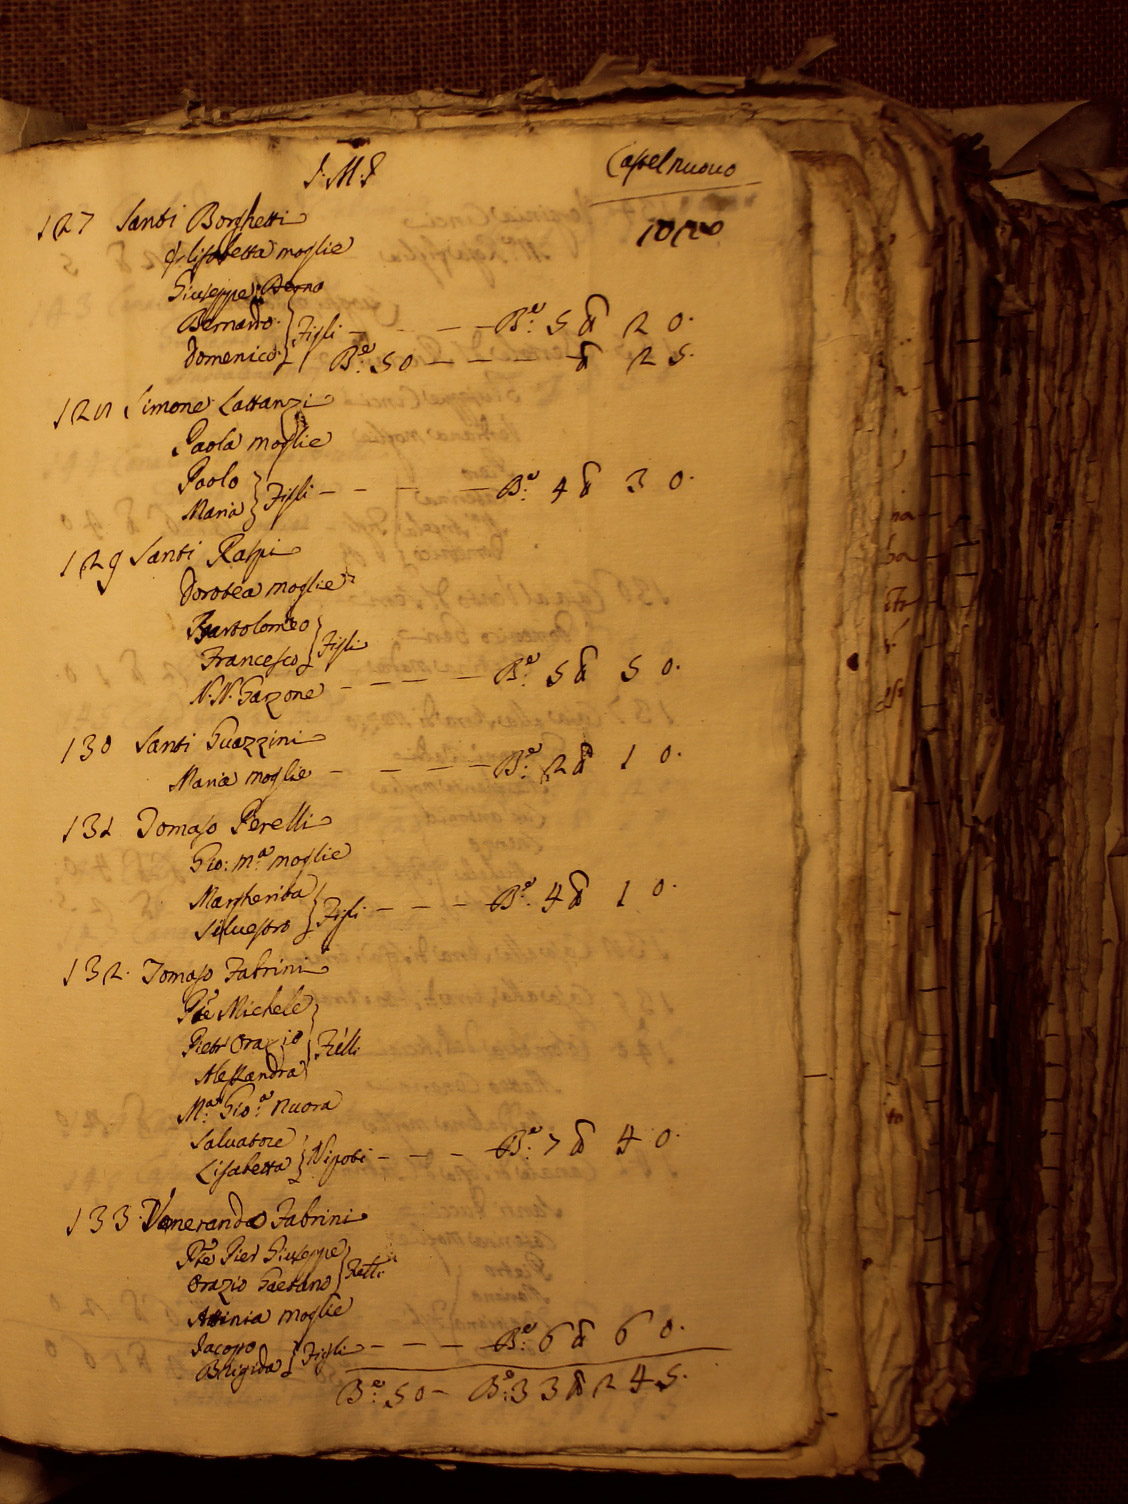 J. M. J
Castelnuovo
127 Santi Borghetti
Elisabetta moglie
Giuseppe
Bernardo
Domenico } Figli — — — Bᵉ: 5 d 20.
Bᵉ: 50 — — — d 25.
128 Simone Lattanzi
Paola moglie
Paolo
Maria } Figli — — — Bᵉ: 4 d 30.
129 Santi Raspi
Dorotea moglie
Bartolomeo
Francesco } Figli
N. N. Garzone — — — Bᵉ: 5 d 50.
130 Santi Guazzini
Maria moglie — — — — Bᵉ: 2 d 10.
131 Tomaso Perelli
Gio: mᵃ moglie
Margherita
Silvestro } Figli — — — Bᵉ: 4 d 10.
132. Tomaso Fabrini
Pᵗᵉ Michele
Pietr Orazio
Alessandra } Fill̃i
Mᵃ: Gio:ᵃ nuora
Salvatore
Lisabetta } Nipoti — — — Bᵉ: 7 d 40.
133 Venerando Fabrini
Pᵗᵉ Pier Giuseppe
Orazio Gaetano } Fratlli
moglie
Jacopo
Brigida } Figli — — — Bᵉ: 6 d 60.
Bᵉ: 50 — Bᵉ: 33 d 245.